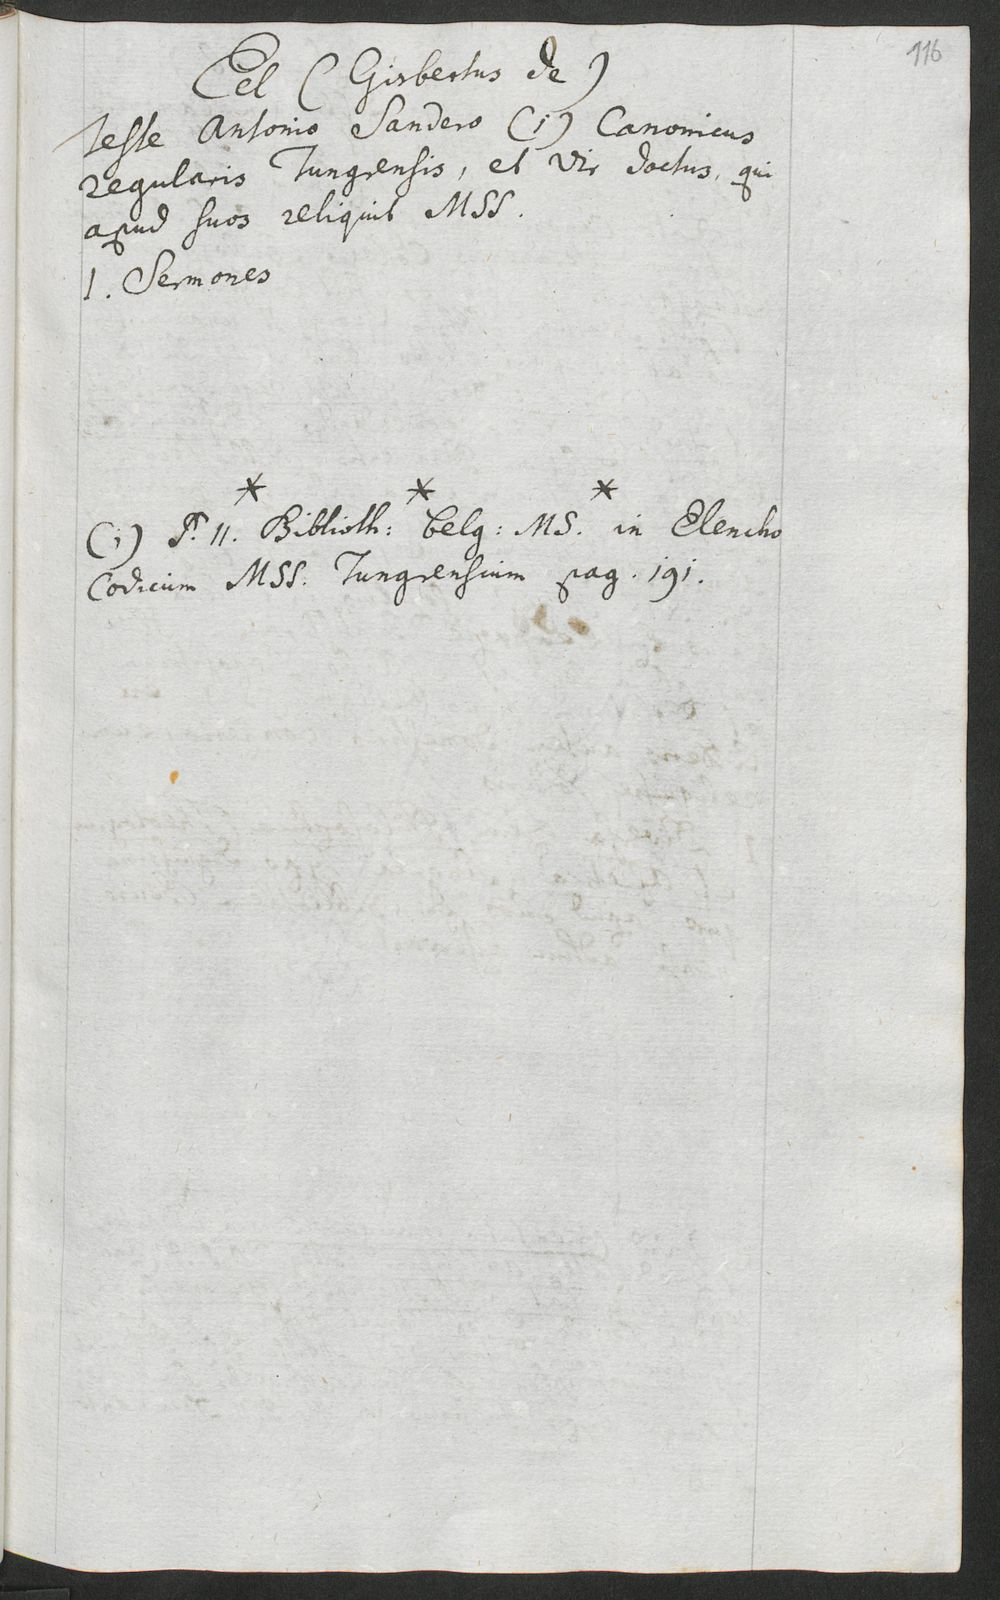 116
Eel (Gisbertus de)
teste Antonio Sandero (1) Canonicus
regularis Tungrensis, et vir doctus, qui
apud suos reliquit MSS.
1. Sermones
* * *
(1) Pr. 11. Biblioth: belg: MS. in Elencho
Codicum MSS. Tungrensium pag. 191.